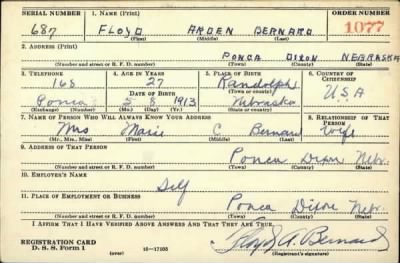 SERIAL NUMBER 1. NAME (Print) ORDER NUMBER
687 FLOYD ARDEN BERNARD 1077
(First) (Middle) (Last)
2. ADDRESS (Print)
PONCA DIXON NEBRASKA
(Number and street or R. F. D. number) (Town) (County) (State)
3. TELEPHONE 4. AGE IN YEARS 5. PLACE OF BIRTH 6. COUNTRY OF CITIZENSHIP
168 27 Randolph
DATE OF BIRTH (Town or county) USA
Ponca 5 8 1913 Nebraska
(Exchange) (Number) (Mo.) (Day) (Yr.) (State or country)
7. NAME OF PERSON WHO WILL ALWAYS KNOW YOUR ADDRESS 8. RELATIONSHIP OF THAT PERSON
Mrs Marie C. Bernard Wife
(Mr., Mrs., Miss) (First) (Middle) (Last)
9. ADDRESS OF THAT PERSON
Ponca Dixon Nebr.
(Number and street or R. F. D. number) (Town) (County) (State)
10. EMPLOYER'S NAME
Self
11. PLACE OF EMPLOYMENT OR BUSINESS
Ponca Dixon Nebr.
(Number and street or R. F. D. number) (Town) (County) (State)
I AFFIRM THAT I HAVE VERIFIED ABOVE ANSWERS AND THAT THEY ARE TRUE.
REGISTRATION CARD
D. S. S. Form 1 (over) 16—17105 Floyd A. Bernard
(Registrant's signature)